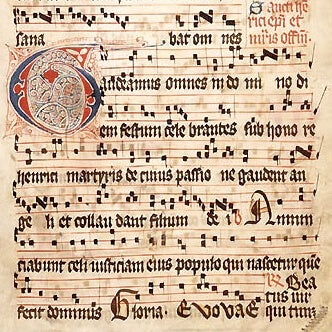 Sancti hē
rici epī et
sana bat om nes mīris offm.
Gaudeamus omnes in do mi no di
em festum cele brantes sub hono re
henrici martyris de cuius passio ne gaudent an
ge li et collau dant filium de i Annun
ciabunt celi iusticiam eius populo qui nascetur que
fecit dominus Gloria. Evovae Bea
tus vir
qui tim